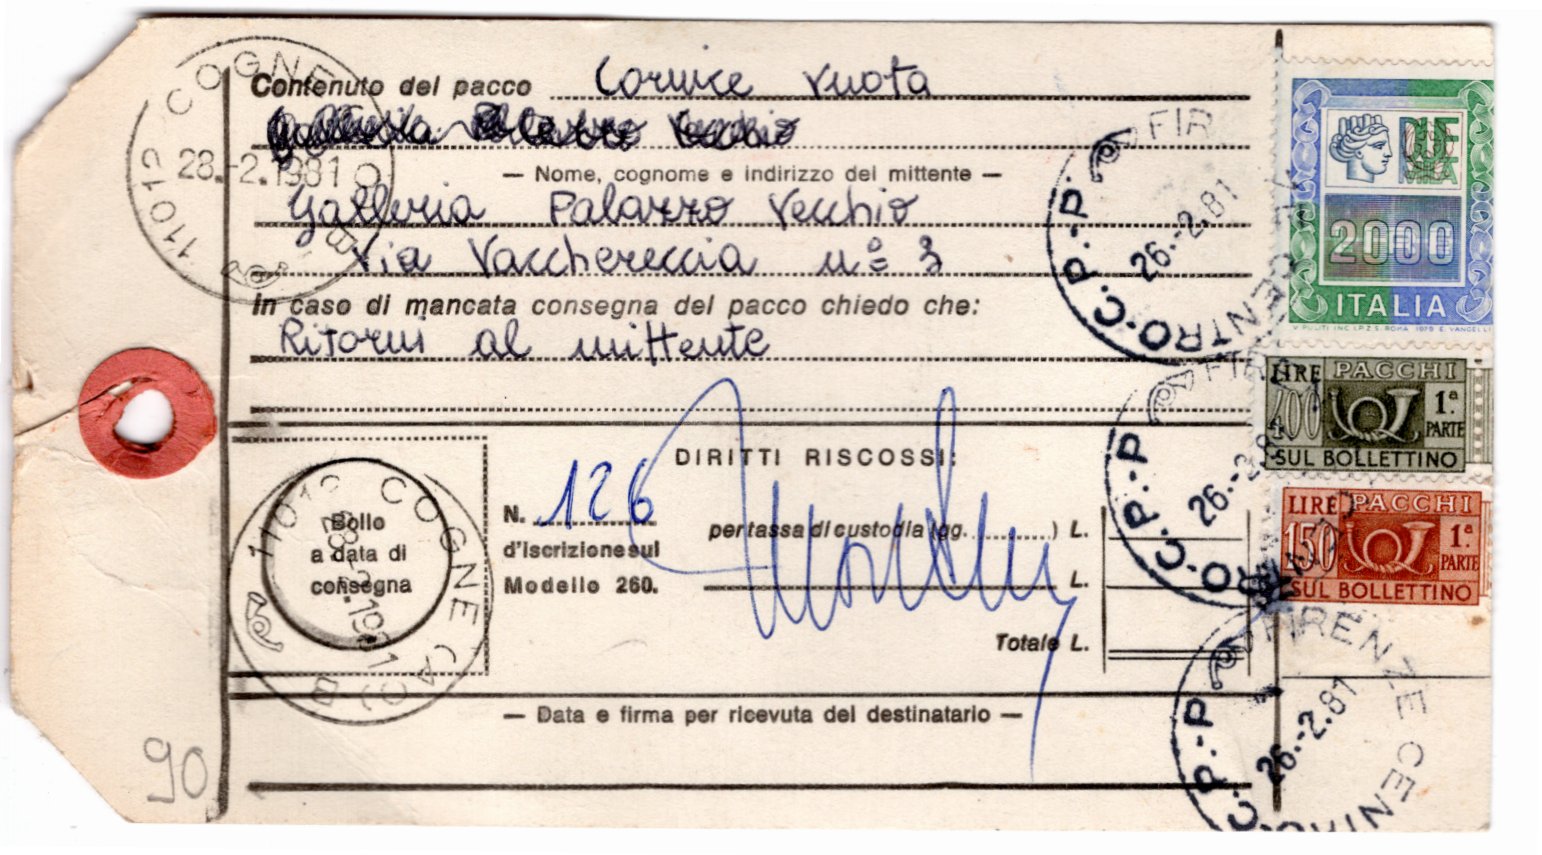 Contenuto del pacco Cornice vuota
— Nome, cognome e indirizzo del mittente —
Galleria Palazzo Vecchio
Via Vacchereccia n° 3
In caso di mancata consegna del pacco chiedo che:
Ritorni al mittente
DIRITTI RISCOSSI:
N. 126
d'iscrizione sul
Modello 260.
per tassa di custodia (gg. ) L.
L.
Totale L.
Bollo
a data di
consegna
— Data e firma per ricevuta del destinatario —
90
11012 COGNE (AO) B
28.-2.1981
11012 COGNE (AO) B
28.-2.1981
FIRENZE CENTRO-C.P.-P.
26.-2.81
FIRENZE CENTRO-C.P.-P.
26.-2.81
FIRENZE CENTRO-C.P.-P.
26.-2.81
DUEMILA
2000
ITALIA
V. PULITI INC. I.P.Z.S. ROMA 1979 E. VANGELLI
LIRE PACCHI
400 1ª PARTE
SUL BOLLETTINO
LIRE PACCHI
150 1ª PARTE
SUL BOLLETTINO